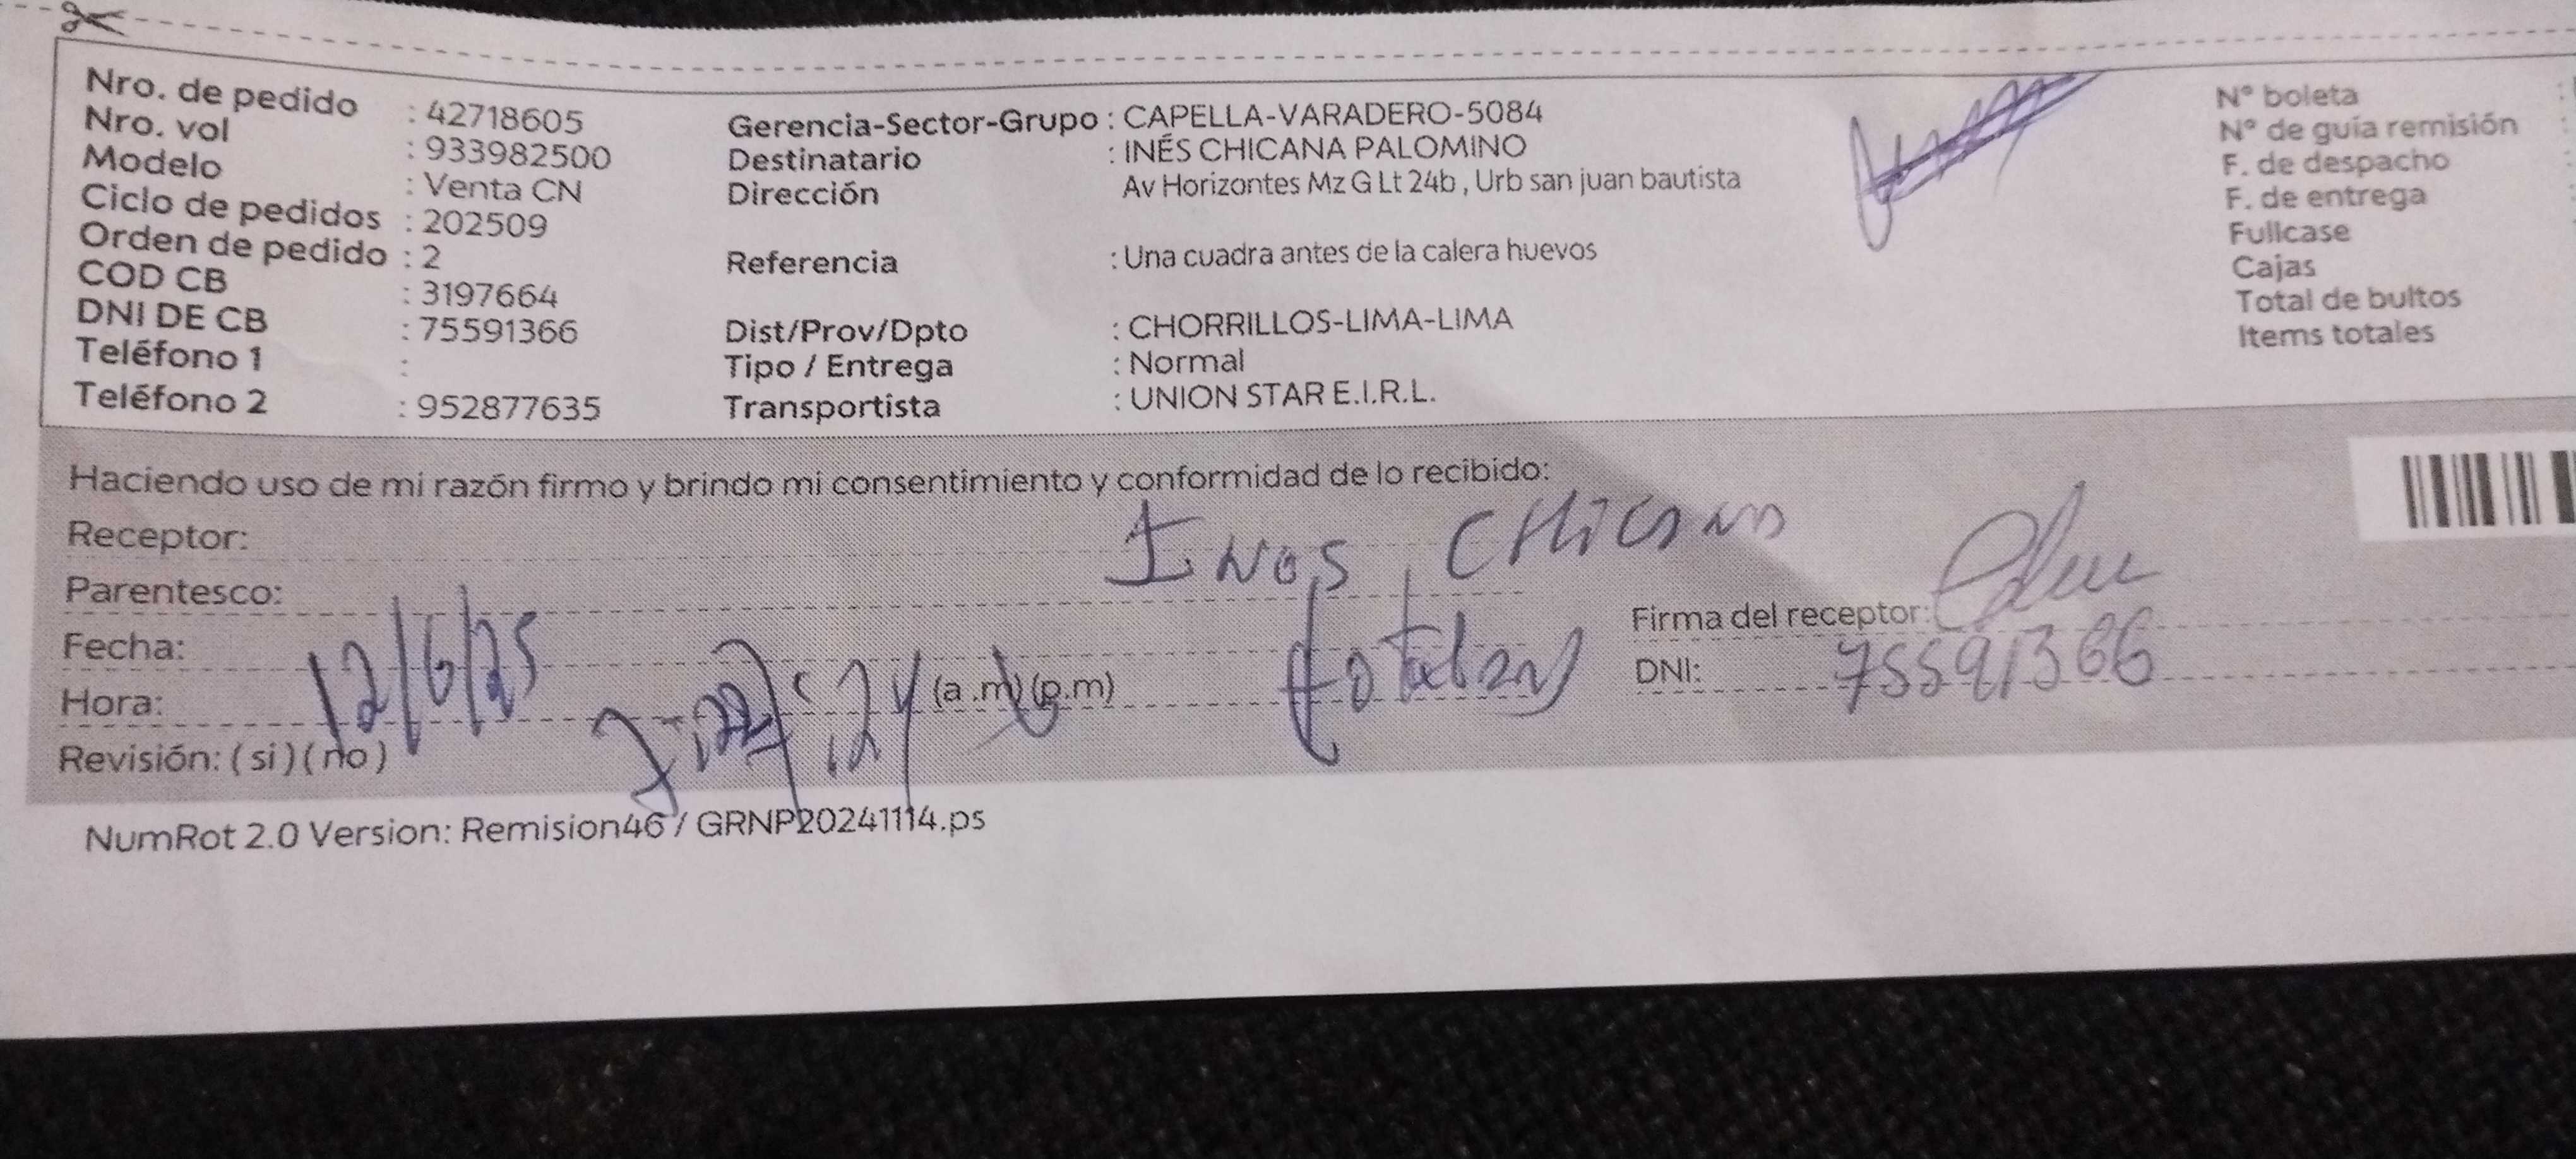 Nro. de pedido : 42718605
Nro. vol : 933982500
Modelo : Venta CN
Ciclo de pedidos : 202509
Orden de pedido : 2
COD CB : 3197664
DNI DE CB : 75591366
Teléfono 1 :
Teléfono 2 : 952877635
Gerencia-Sector-Grupo : CAPELLA-VARADERO-5084
Destinatario : INÉS CHICANA PALOMINO
Dirección Av Horizontes Mz G Lt 24b , Urb san juan bautista
Referencia : Una cuadra antes de la calera huevos
Dist/Prov/Dpto : CHORRILLOS-LIMA-LIMA
Tipo / Entrega : Normal
Transportista : UNION STAR E.I.R.L.
N° boleta
N° de guía remisión
F. de despacho
F. de entrega
Fullcase
Cajas
Total de bultos
Items totales
Haciendo uso de mi razón firmo y brindo mi consentimiento y conformidad de lo recibido:
Receptor:
Parentesco:
Fecha: 12/6/25
Hora: (a .m) (p.m)
Revisión: ( si ) ( no )
Firma del receptor:
DNI: 75591366
NumRot 2.0 Version: Remision46 / GRNP20241114.ps